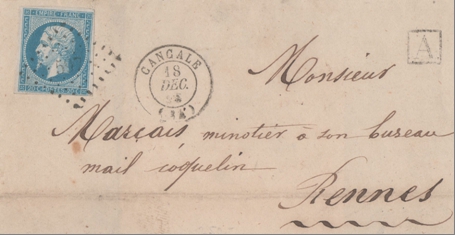 EMPIRE FRANC
CANCALE
18
DEC.
A
Monsieur
Marçais, minotier à son bureau
mail coquelin
Rennes